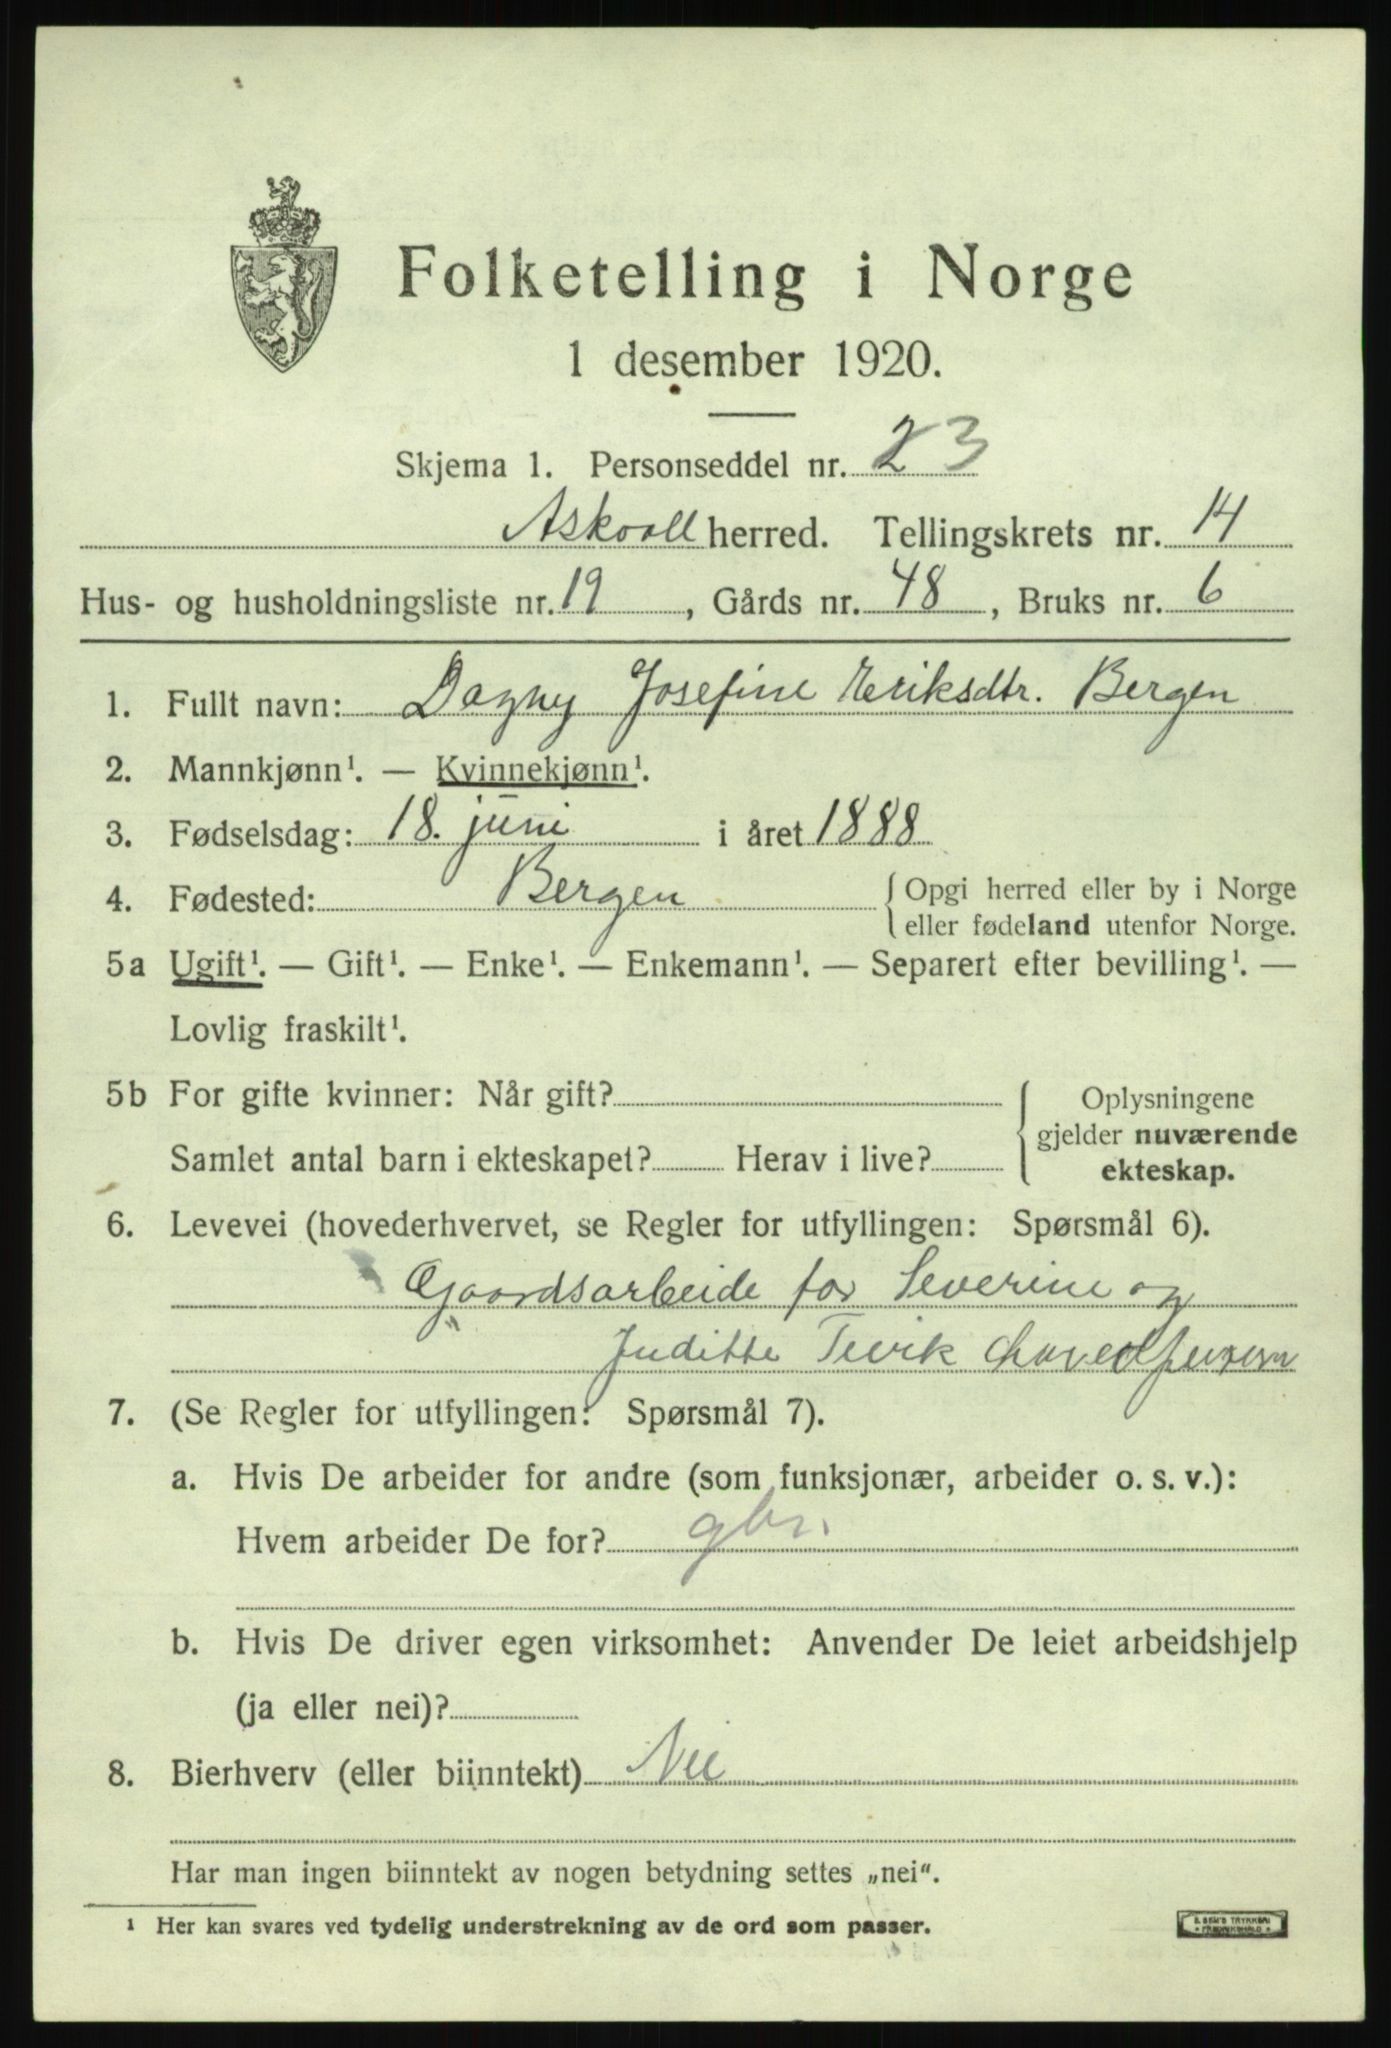 Folketelling i Norge
1 desember 1920.
Skjema 1. Personseddel nr. 2 3
Askvoll herred. Tellingskrets nr. 14
Hus- og husholdningsliste nr. 19, Gårds nr. 48, Bruks nr. 6
1. Fullt navn: Dagny Josefine Eriksdtr. Bergen
2. Mannkjønn¹. — Kvinnekjønn¹.
3. Fødselsdag: 18. juni i året 1888
4. Fødested: Bergen {Opgi herred eller by i Norge
eller fødeland utenfor Norge.
5a Ugift¹. — Gift¹. — Enke¹. — Enkemann¹. — Separert efter bevilling¹. —
Lovlig fraskilt¹.
5b For gifte kvinner: Når gift?
Samlet antal barn i ekteskapet? Herav i live?
Oplysningene
gjelder nuværende
ekteskap.
6. Levevei (hovederhvervet, se Regler for utfyllingen: Spørsmål 6).
Gaardsarbeide for Severine og
Juditte
7. (Se Regler for utfyllingen: Spørsmål 7).
a. Hvis De arbeider for andre (som funksjonær, arbeider o. s. v.):
Hvem arbeider De for? gbr.
b. Hvis De driver egen virksomhet: Anvender De leiet arbeidshjelp
(ja eller nei)?
8. Bierhverv (eller biinntekt) Nei
Har man ingen biinntekt av nogen betydning settes „nei“.
¹ Her kan svares ved tydelig understrekning av de ord som passer.